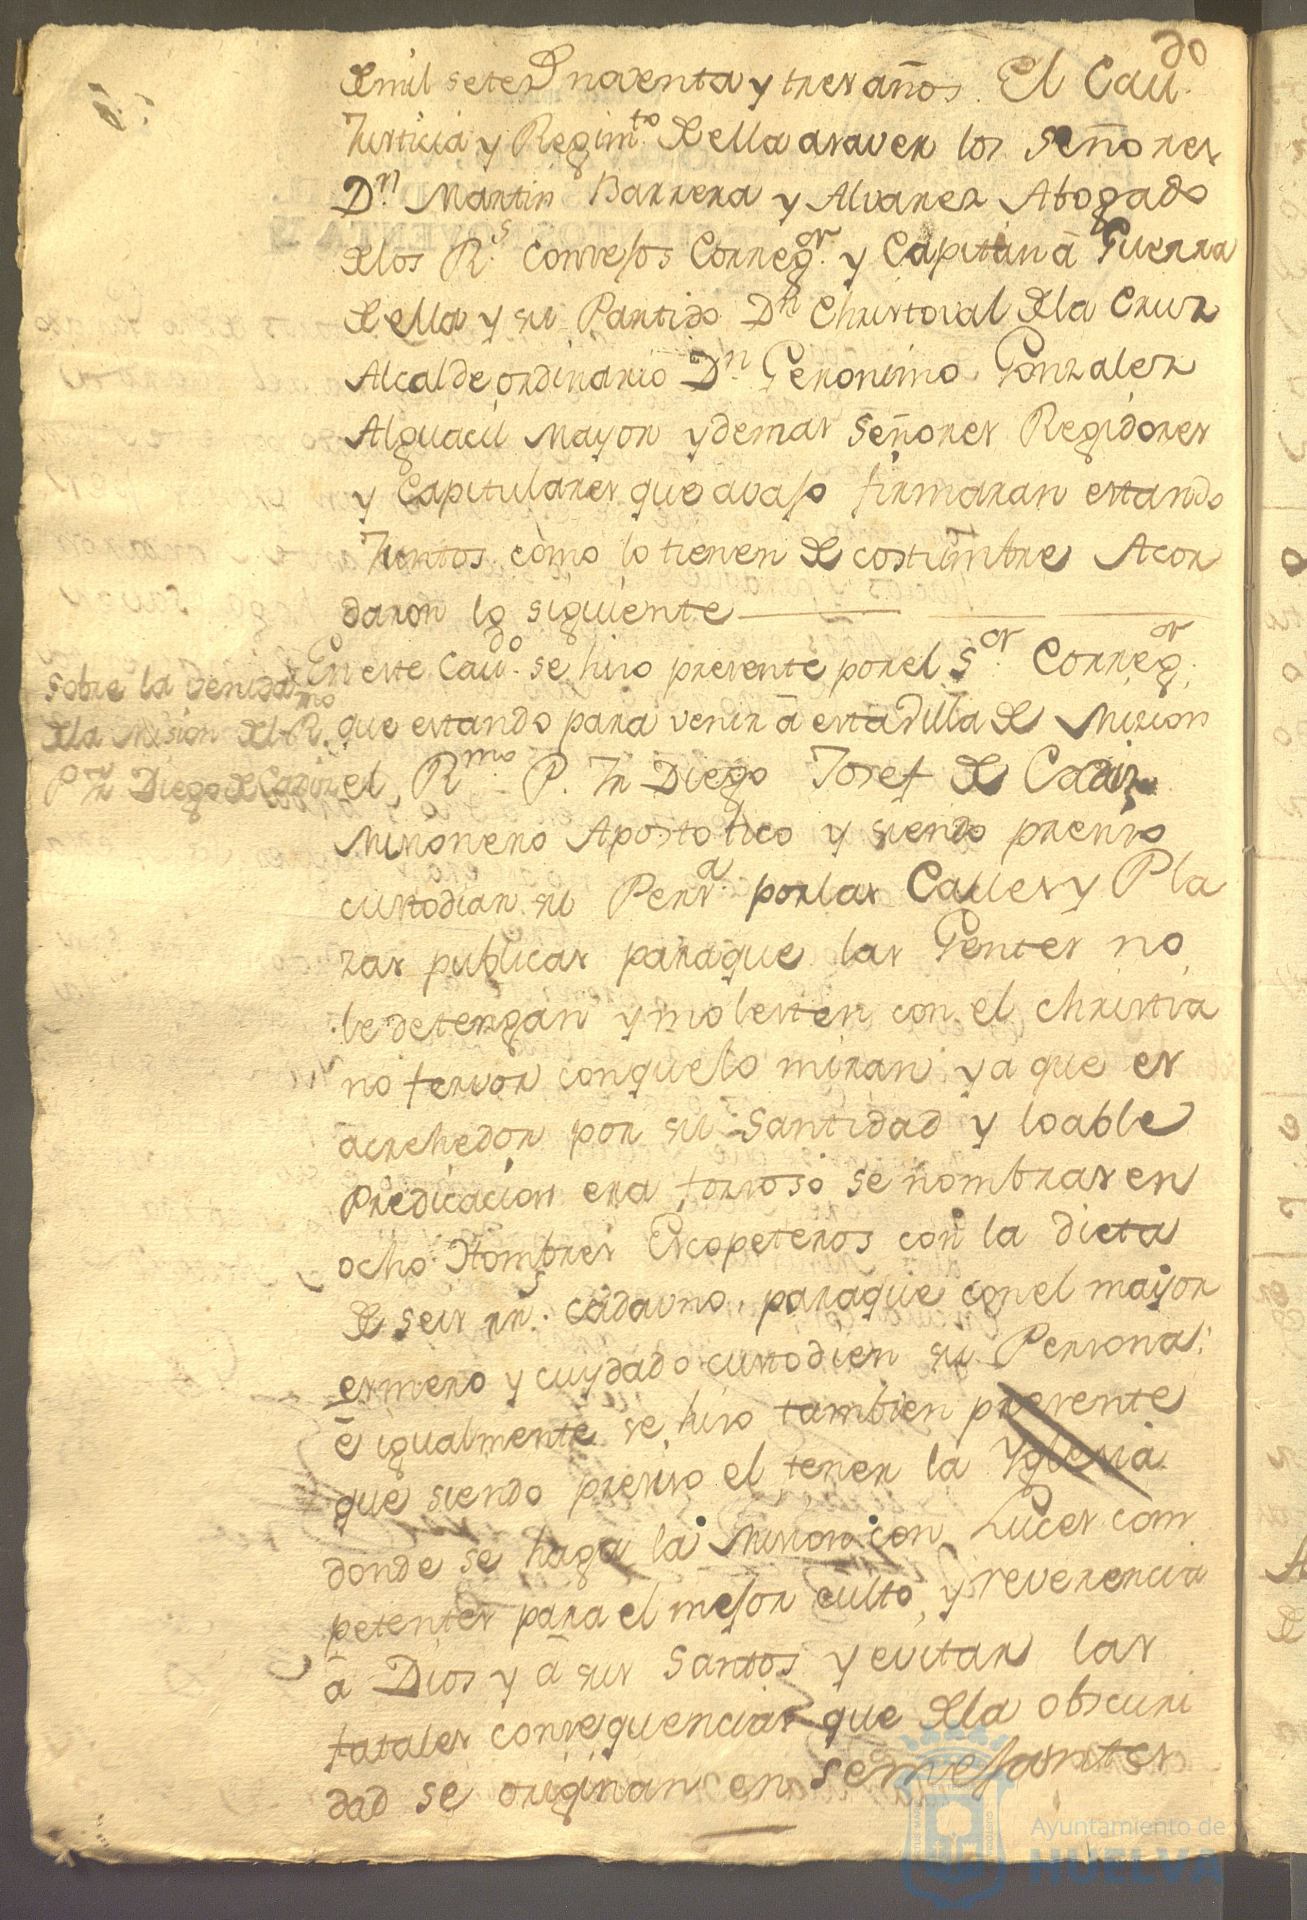 de mil seteᵗ noventa y tres años. El Cavᵈᵒ
Justicia y Regimᵗᵒ de ella a saver los Señores
Dⁿ Martin Barrera y Alvarez Abogado
de los Rˢ Consejos Corregᵒʳ y Capitan á Guerra
de ella y su Partido Dⁿ Christoval de la Cruz
Alcalde ordinario Dⁿ Geronimo Gonzalez
Alguacil Mayor y demas Señores Regidores
y Capitulares que avajo firmaran estando
Juntos como lo tienen de costumbre Acor
daron lo siguiente
En este Cavᵈᵒ se hiso presente por el Sᵒʳ Corregᵒʳ
que estando para venir á esta Villa de Mision
el Rᵐᵒ P. Fr Diego Josef de Cadiz
Misionero Apostolico y siendo presiso
custodiar su Persᵃ por las Calles y Pla
zas publicas para que las Gentes no
le detengan y molesten con el christia
no fervor con que lo miran ya que es
acrehedor por su Santidad y loable
predicacion era forsoso se nombrasen
ocho Hombres Escopeteros con la dieta
de seis rrˢ cada uno, para que con el maior
esmero y cuydado custodien su Persona;
é igualmente se hiso tambien presente
que siendo presiso el tener la Yglesia
donde se haga la Mision con Luces com
petentes para el mejor culto, y reverencia
á Dios y á sus Santos y evitar las
fatales consequencias que de la obscuri
dad se originan en semejantes
Sobre la Venida
de la Mision del Rᵐᵒ
P Fr Diego de Cadiz
Ayuntamiento de
HUELVA